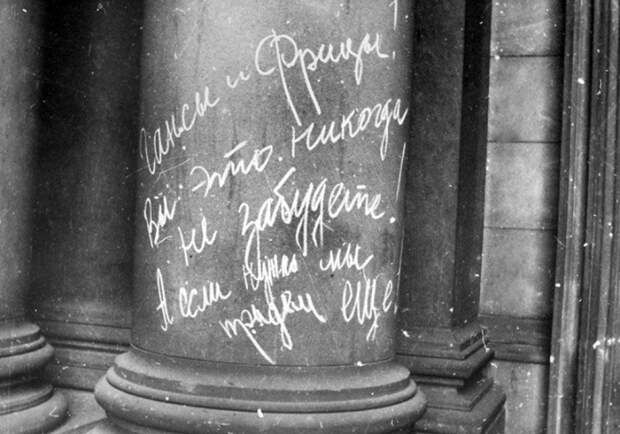 Гансы и Фрицы!
Вы это никогда
не забудете!
А если нужно мы
придём еще!